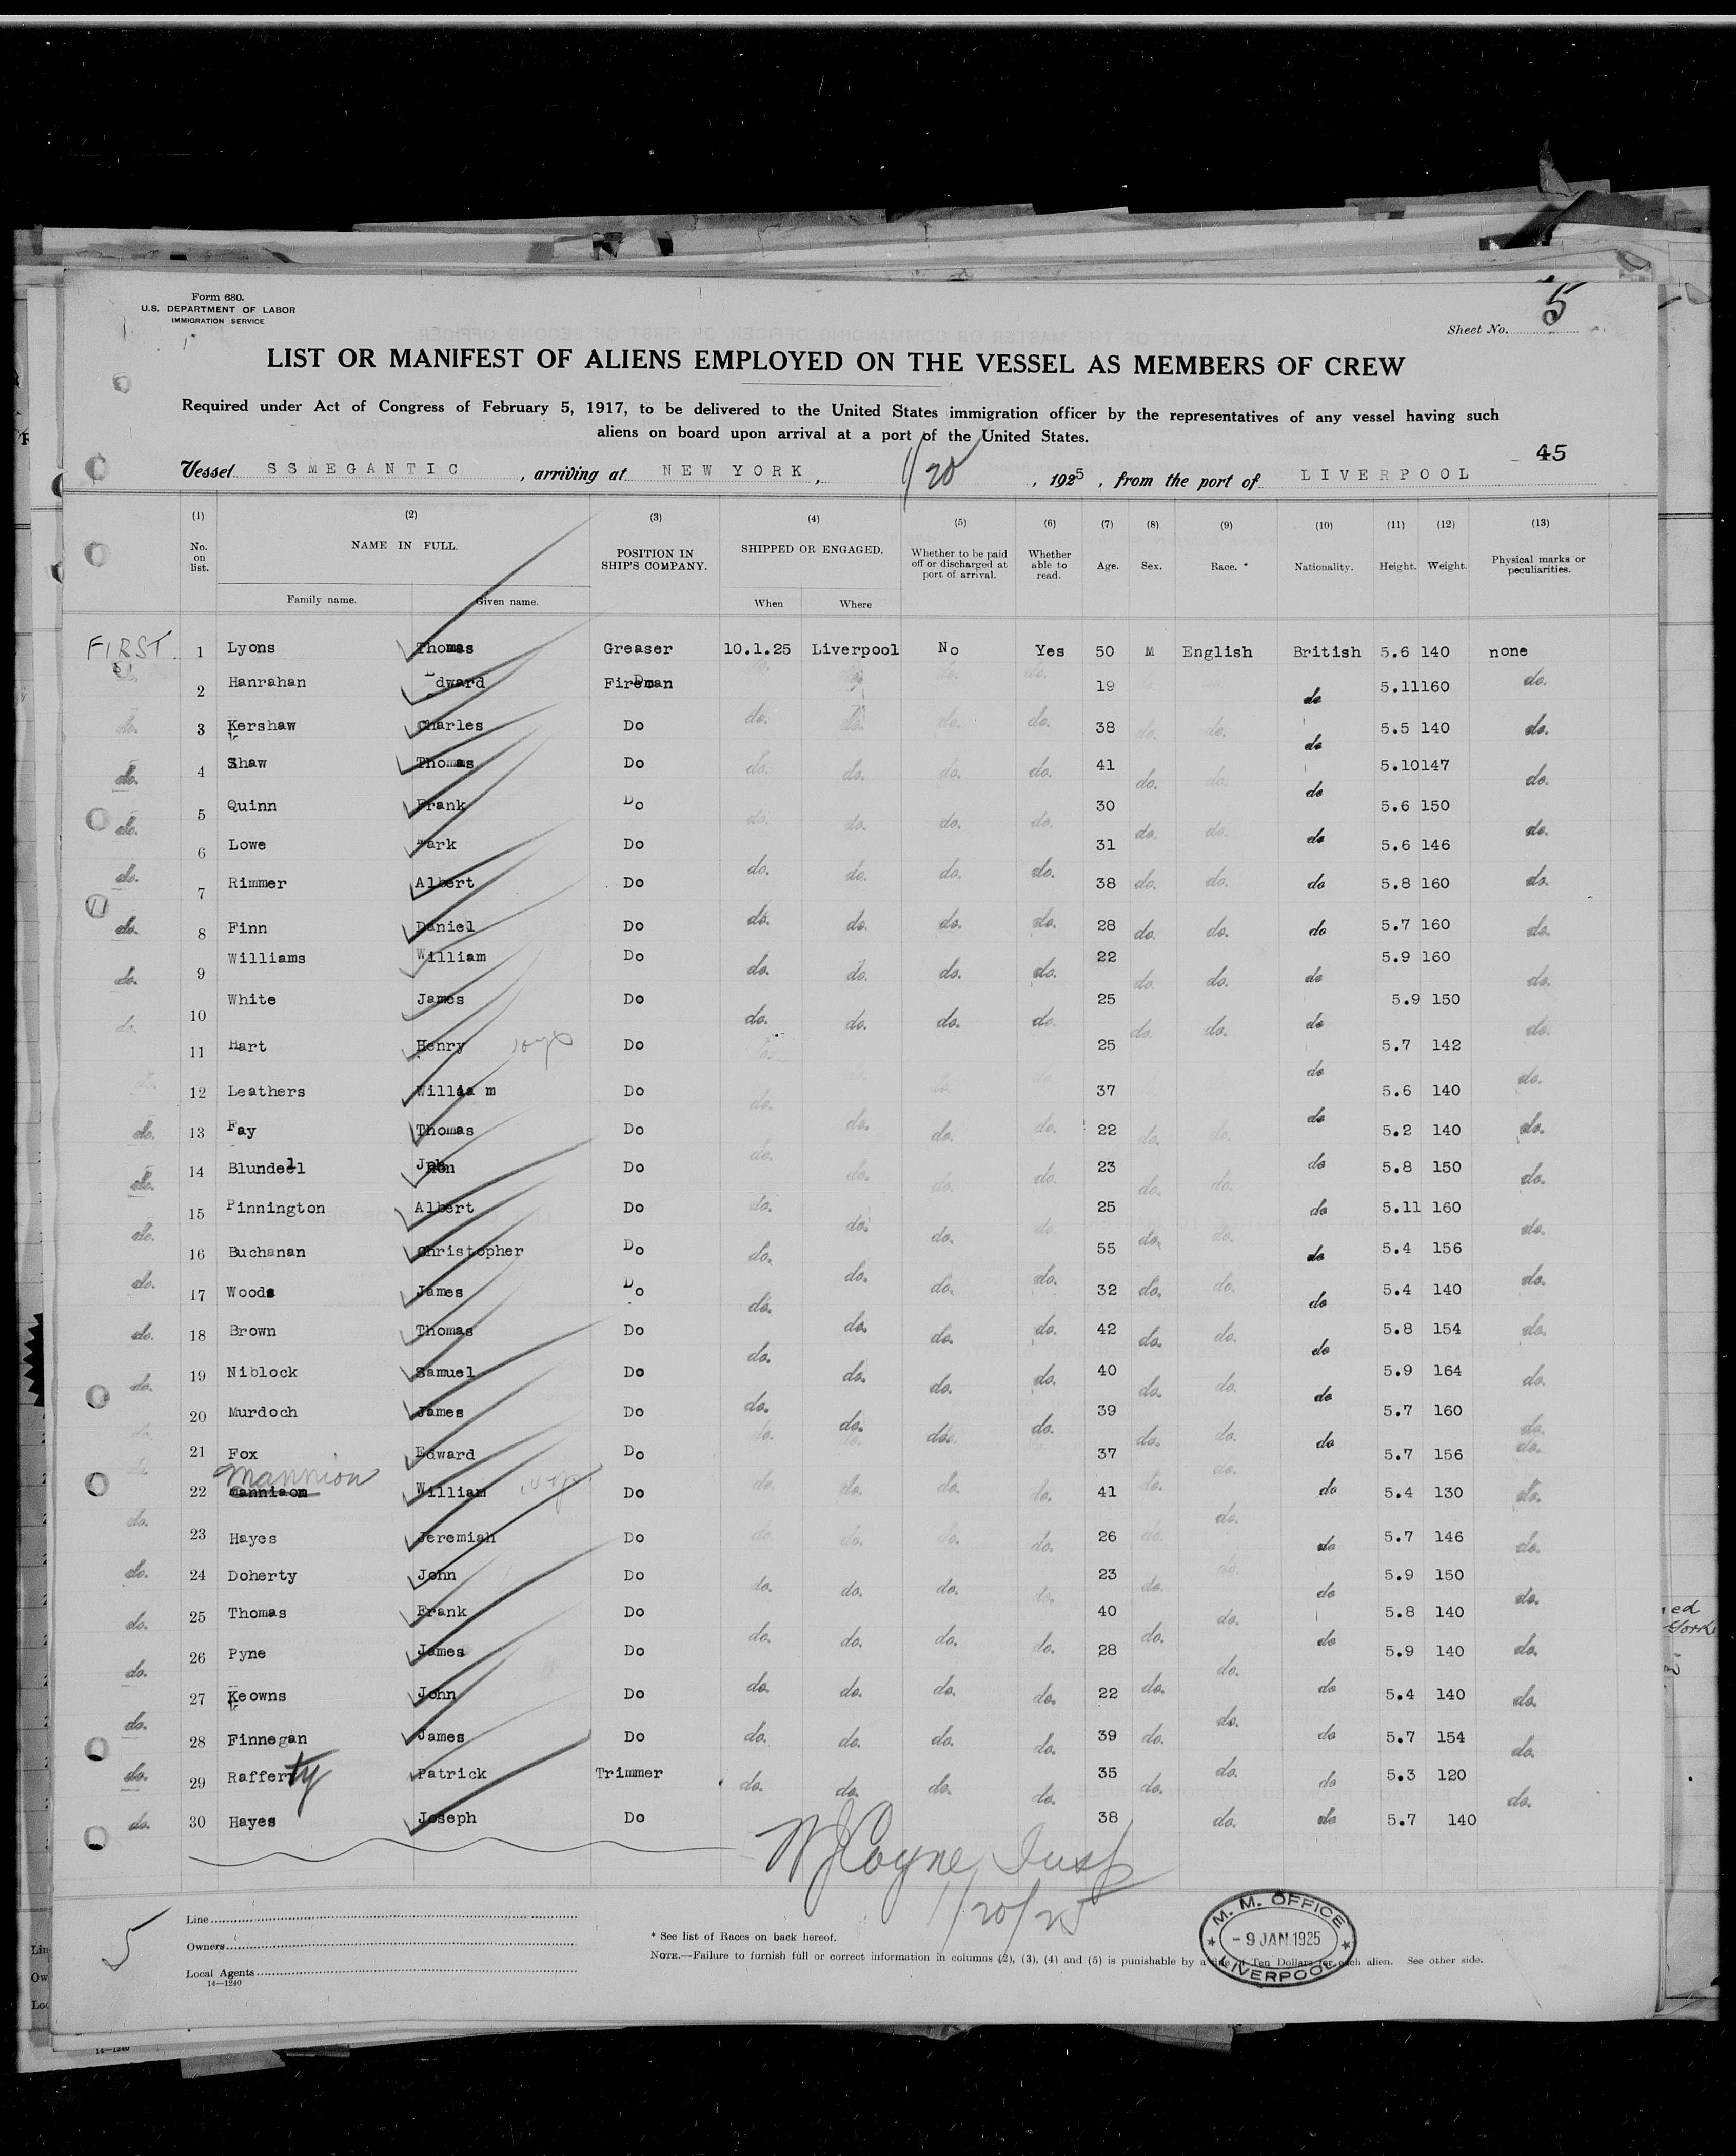 Form 680.
U.S. DEPARTMENT OF LABOR
IMMIGRATION SERVICE
Sheet No. 5
LIST OR MANIFEST OF ALIENS EMPLOYED ON THE VESSEL AS MEMBERS OF CREW
Required under Act of Congress of February 5, 1917, to be delivered to the United States immigration officer by the representatives of any vessel having such
aliens on board upon arrival at a port of the United States.
45
Vessel SSMEGANTIC, arriving at NEW YORK, 1/20, 1925, from the port of LIVERPOOL
(1) (2) (3) (4) (5) (6) (7) (8) (9) (10) (11) (12) (13)
No. on list. NAME IN FULL. POSITION IN SHIP'S COMPANY. SHIPPED OR ENGAGED. Whether to be paid off or discharged at port of arrival. Whether able to read. Age. Sex. Race. * Nationality. Height. Weight. Physical marks or peculiarities.
Family name. Given name. When Where
FIRST 1 Lyons Thomas Greaser 10.1.25 Liverpool No Yes 50 M English British 5.6 140 none
do. 2 Hanrahan Edward Fireman do. do. do. do. 19 do 5.11 160 do.
do. 3 Kershaw Charles Do do. do. do. do. 38 do. do. do 5.5 140 do.
do. 4 Shaw Thomas Do do. do. do. do. 41 do. do. do 5.10 147 do.
do. 5 Quinn Frank Do do. do. do. do. 30 do. do. do 5.6 150 do.
do. 6 Lowe Mark Do do. do. do. do. 31 do. do. do 5.6 146 do.
do. 7 Rimmer Albert Do do. do. do. do. 38 do. do. do 5.8 160 do.
do. 8 Finn Daniel Do do. do. do. do. 28 do. do. do 5.7 160 do.
do. 9 Williams William Do do. do. do. do. 22 do. do. do 5.9 160 do.
do. 10 White James Do do. do. do. do. 25 do. do. do 5.9 150 do.
11 Hart Henry Do 25 do 5.7 142
do. 12 Leathers William Do do. do. do. do. 37 do 5.6 140 do.
do. 13 Fay Thomas Do do. do. do. do. 22 do. do. do 5.2 140 do.
do. 14 Blundell John Do do. do. do. do. 23 do. do. do 5.8 150 do.
do. 15 Pinnington Albert Do do. do. do. do. 25 do. do. do 5.11 160 do.
do. 16 Buchanan Christopher Do do. do. do. do. 55 do. do. do 5.4 156 do.
do. 17 Woods James Do do. do. do. do. 32 do. do. do 5.4 140 do.
do. 18 Brown Thomas Do do. do. do. do. 42 do. do. do 5.8 154 do.
do. 19 Niblock Samuel Do do. do. do. do. 40 do. do. do 5.9 164 do.
do. 20 Murdoch James Do do. do. do. do. 39 do. do. do 5.7 160 do.
do. 21 Fox Edward Do do. do. 37 do. do 5.7 156 do.
Mannion
do. 22 manniaom William Do do. do. do. do. 41 do. do. do 5.4 130 do.
do. 23 Hayes Jeremiah Do do. do. do. do. 26 do. do. do 5.7 146 do.
do. 24 Doherty John Do do. do. do. do. 23 do. do. do 5.9 150 do.
do. 25 Thomas Frank Do do. do. do. do. 40 do. do. do 5.8 140 do.
do. 26 Pyne James Do do. do. do. do. 28 do. do. do 5.9 140 do.
do. 27 Keowns John Do do. do. do. do. 22 do. do. do 5.4 140 do.
do. 28 Finnegan James Do do. do. do. do. 39 do. do. do 5.7 154 do.
do. 29 Rafferty Patrick Trimmer do. do. do. do. 35 do. do. do 5.3 120 do.
do. 30 Hayes Joseph Do 38 do. do 5.7 140
W J Coyne Insp
1/20/25
5
Line
Owners
Local Agents
14—1240
* See list of Races on back hereof.
NOTE.—Failure to furnish full or correct information in columns (2), (3), (4) and (5) is punishable by a fine of Ten Dollars for each alien. See other side.
M. M. OFFICE
- 9 JAN. 1925
LIVERPOOL
14—1240